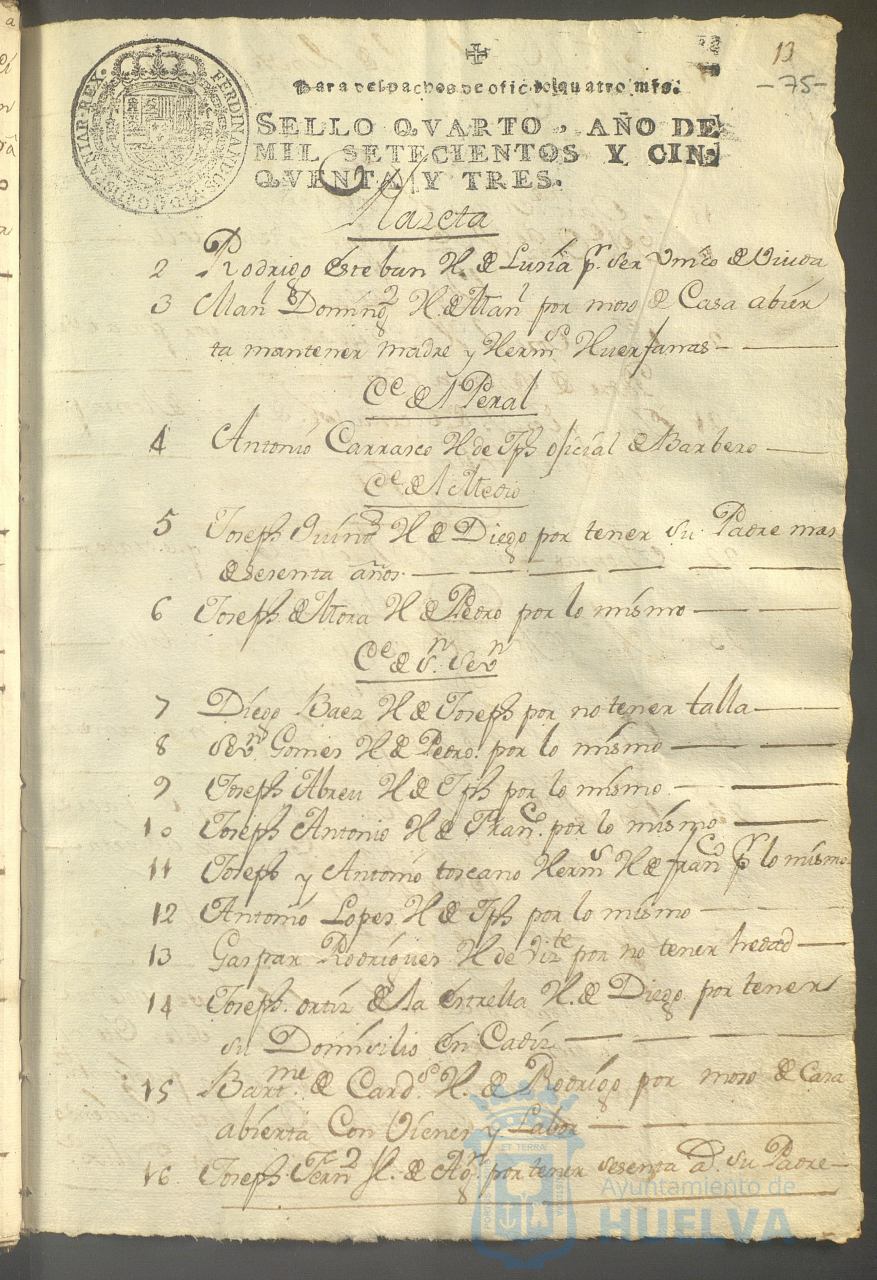 13
-75-
Para despachos de ofic dos quatro mrs.
SELLO QVARTO, AÑO DE
MIL SETECIENTOS Y CIN,
QVENTA Y TRES.
FERDINANDUS VI D G HISPANIAR REX
Plazeta
2 Rodrigo Esteban H. de Lusia pr. ser Unico de Viuda
3 Manl Domingz H. de Manl por moso de Casa abier
ta mantener madre y Hermas Huerfanas
Ce del Peral
4 Antonio Carrasco H de Jph oficial de Barbero
Ce del Medio
5 Joseph H de Diego por tener su Padre mas
de sesenta años
6 Joseph de Mora H de Pedro por lo mismo
Ce de Sn. Sevn
7 Diego Baez H de Joseph por no tener talla
8 Sevno Gomes H de Pedro por lo mismo
9 Joseph Abreu H de Jph por lo mismo
10 Joseph Antonio H de Franco. por lo mismo
11 Joseph y Antonio toscano Hermos H de franco pr lo mismo
12 Antonio Lopes H de Jph por lo mismo
13 Gaspar Rodrigues H de Vizte por no tener hedad
14 Joseph ortiz de la estrella H. de Diego por tener
su Domisilio en Cadiz
15 Bartme de Cardso H. de Rodrigo por moso de Casa
abierta Con Vienes y Labor
16 Joseph Fernz H. de Agn por tener sesenta ad. su Padre
Ayuntamiento de
HUELVA